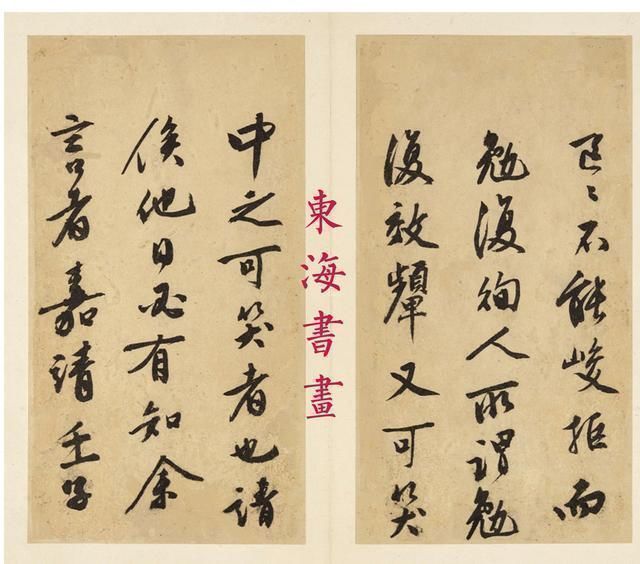 不能峻拒而
勉復徇人所謂勉
復效顰又可笑
東海書畫
中之可笑者也請
俟他日必有知余
言者嘉靖壬子